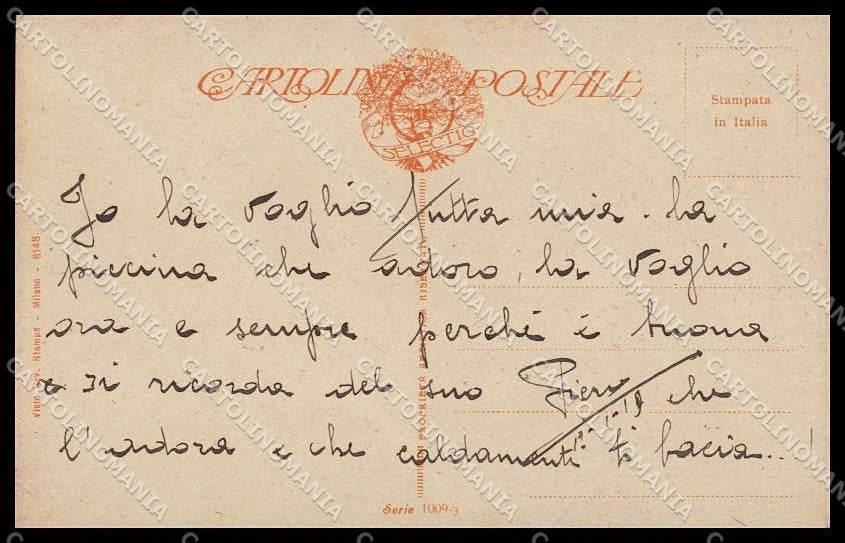 CARTOLINA POSTALE
SELECTIO
Stampata
in Italia
Io la voglio tutta mia. la
piccina che adoro, la voglio
ora e sempre perché è buona
e si ricorda del suo Piero che
l'adora e che caldamente ti bacia...!
1-1-19
Visto Rev. Stampa - Milano - 6148.
PROPRIETÀ RISERVATA
Serie 1009-3
CARTOLINOMANIA